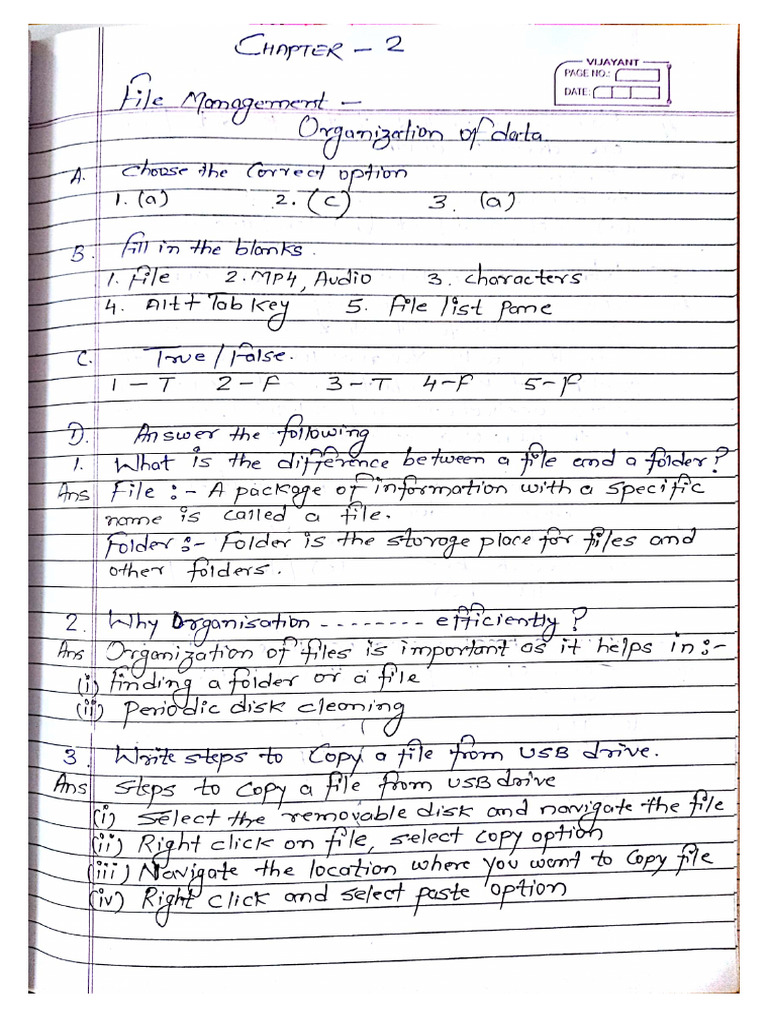 CHAPTER - 2
VIJAYANT
PAGE NO.:
DATE:
File Management -
Organization of data
A. Choose the Correct option
1. (a) 2. (c) 3. (a)
B. Fill in the blanks.
1. File 2. MP4, Audio 3. characters
4. Alt + Tab key 5. File list pane
C. True / False.
1 - T 2 - F 3 - T 4 - F 5 - F
D. Answer the following
1. What is the difference between a file and a folder?
Ans File :- A package of information with a specific
name is called a file.
Folder :- Folder is the storage place for files and
other folders.
2. Why Organisation -------- efficiently?
Ans Organization of files is important as it helps in :-
(i) Finding a folder or a file
(ii) Periodic disk cleaning
3. Write steps to Copy a file from USB drive.
Ans Steps to copy a file from USB drive
(i) Select the removable disk and navigate the file
(ii) Right click on file, select copy option
(iii) Navigate the location where you want to copy file
(iv) Right click and select paste option